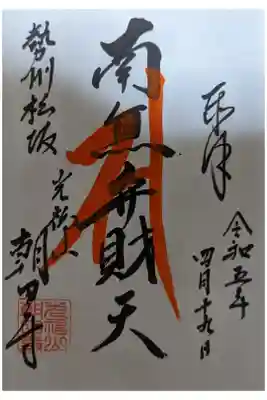 奉拝
令和五年
四月十九日
南無弁財天
勢州松阪
光福山
朝田寺